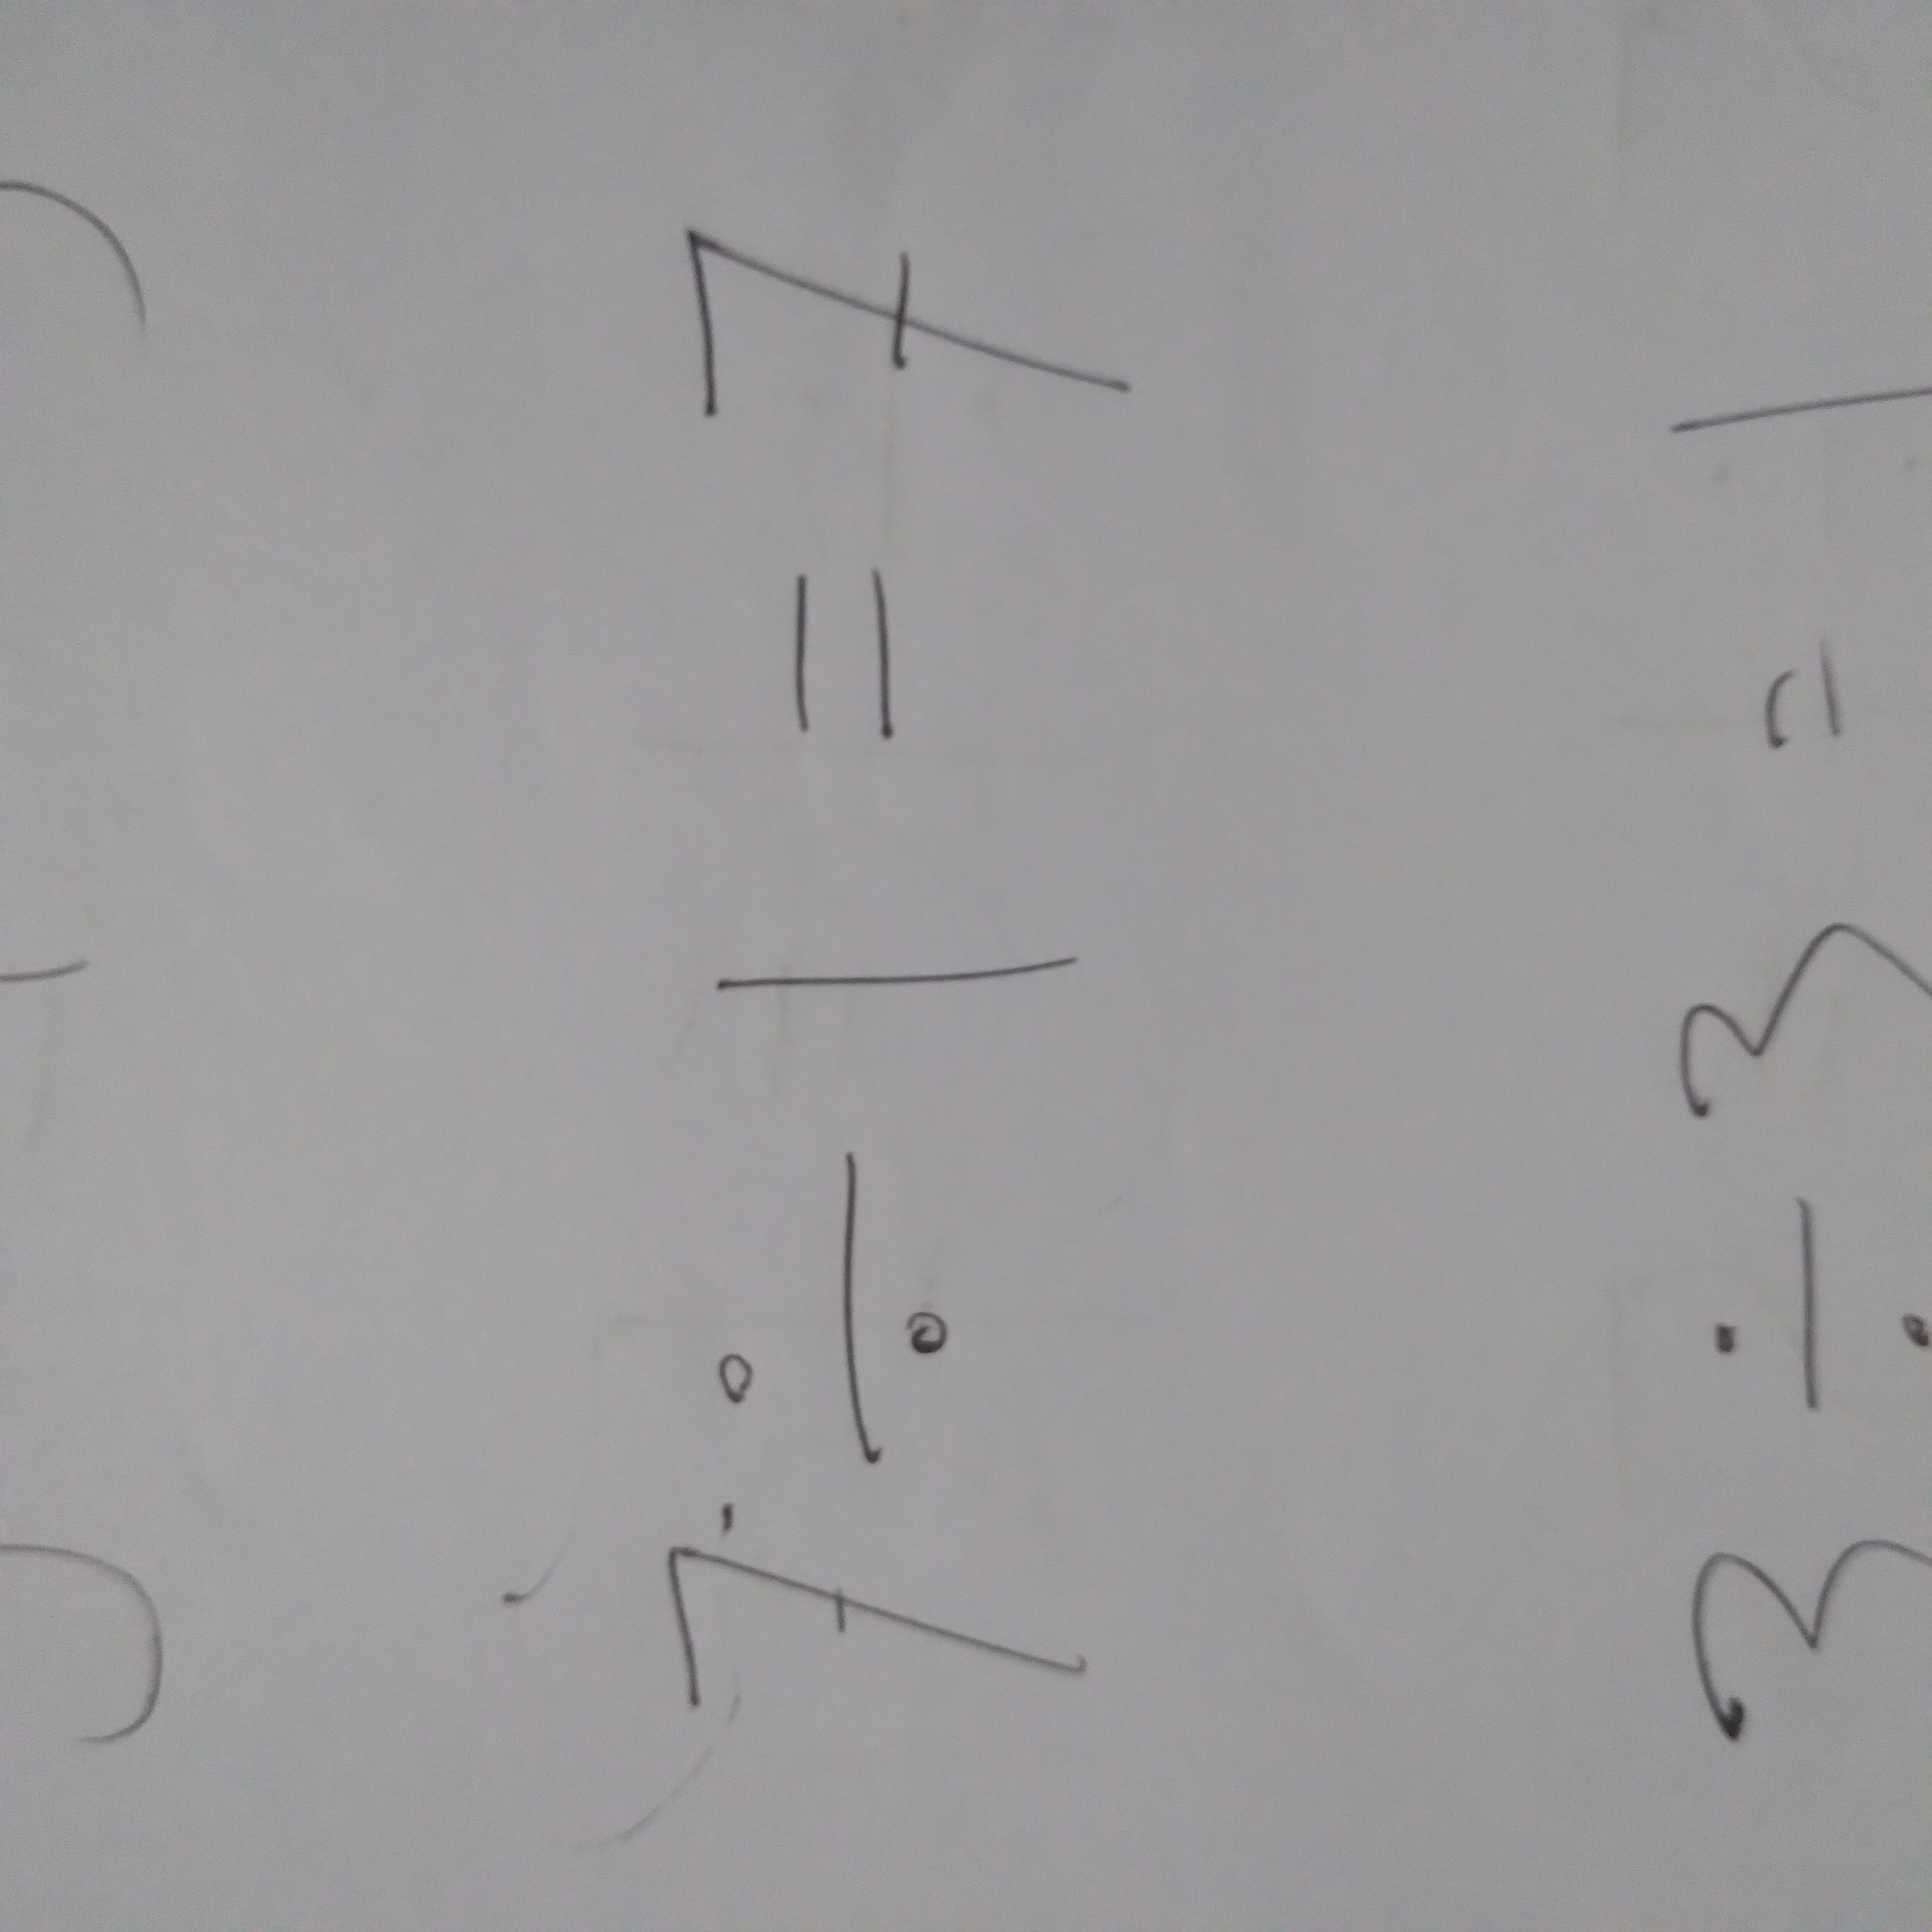 7 ÷ 1 = 7
3 ÷ 3 = 1